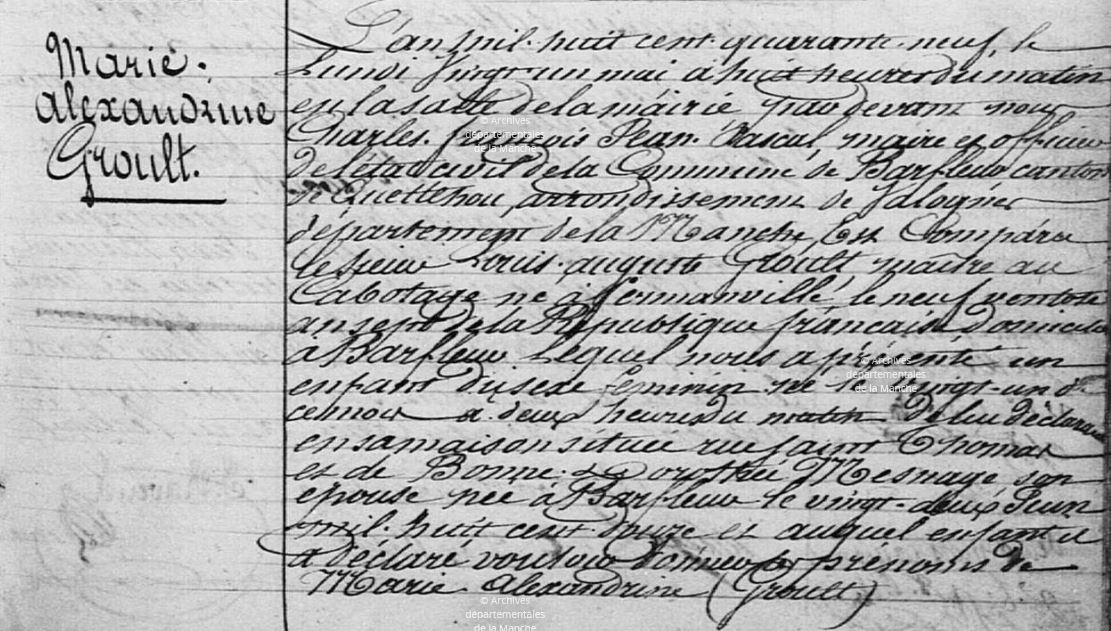 Marie.
Alexandrine
Groult.
L'an mil-huit cent-quarante-neuf, le
Lundi vingt-un mai à huit heures du matin
en la salle de la mairie par devant nous
Charles-François Jean-Pascal, maire et officier
de l'état civil de la Commune de Barfleur canton
de Quettehou, arrondissement de Valognes
département de la Manche, Est Comparu
le sieur Louis-auguste Groult maitre au
Cabotage né à fermanville le neuf ventose
an sept de la République française domicilié
à Barfleur Lequel nous a présenté un
enfant du sexe féminin né le vingt-un de
ce mois à deux heures du matin de lui déclarant
en sa maison située rue saint Thomas
et de Bonne Dorothée Mesnage son
épouse née à Barfleur le vingt-deux Juin
mil-huit cent douze et auquel enfant il
a déclaré vouloir donner les prénoms de
Marie-Alexandrine (Groult)
© Archives
départementales
de la Manche
© Archives
départementales
de la Manche
© Archives
départementales
de la Manche